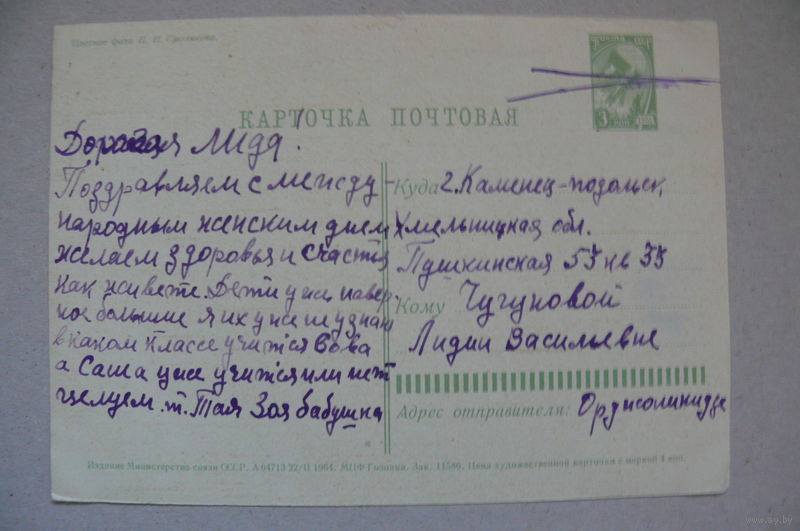 Цветное фото П. П. Смолякова.
ПОЧТА СССР
3 КОП
КАРТОЧКА ПОЧТОВАЯ
Дорогая Лида!
Поздравляем с между-
народным женским днем
желаем здоровья и счастя
Как живете. Дети уже навер-
ное большие я их уже не узнаю
в каком классе учится Вова
а Саша уже учится или нет
целуем. т. Тая Зоя бабушка
Куда г. Каменец-подольск,
Хмельницкая обл.
Пушкинская 55 кв 35
Кому Чугуновой
Лидии Васильевне
Адрес отправителя: Орджоникидзе
Издание Министерства связи СССР. А 04713 22/II 1964. МПФ Гознака. Зак. 11580. Цена художественной карточки с маркой 4 коп.
www.ay.by